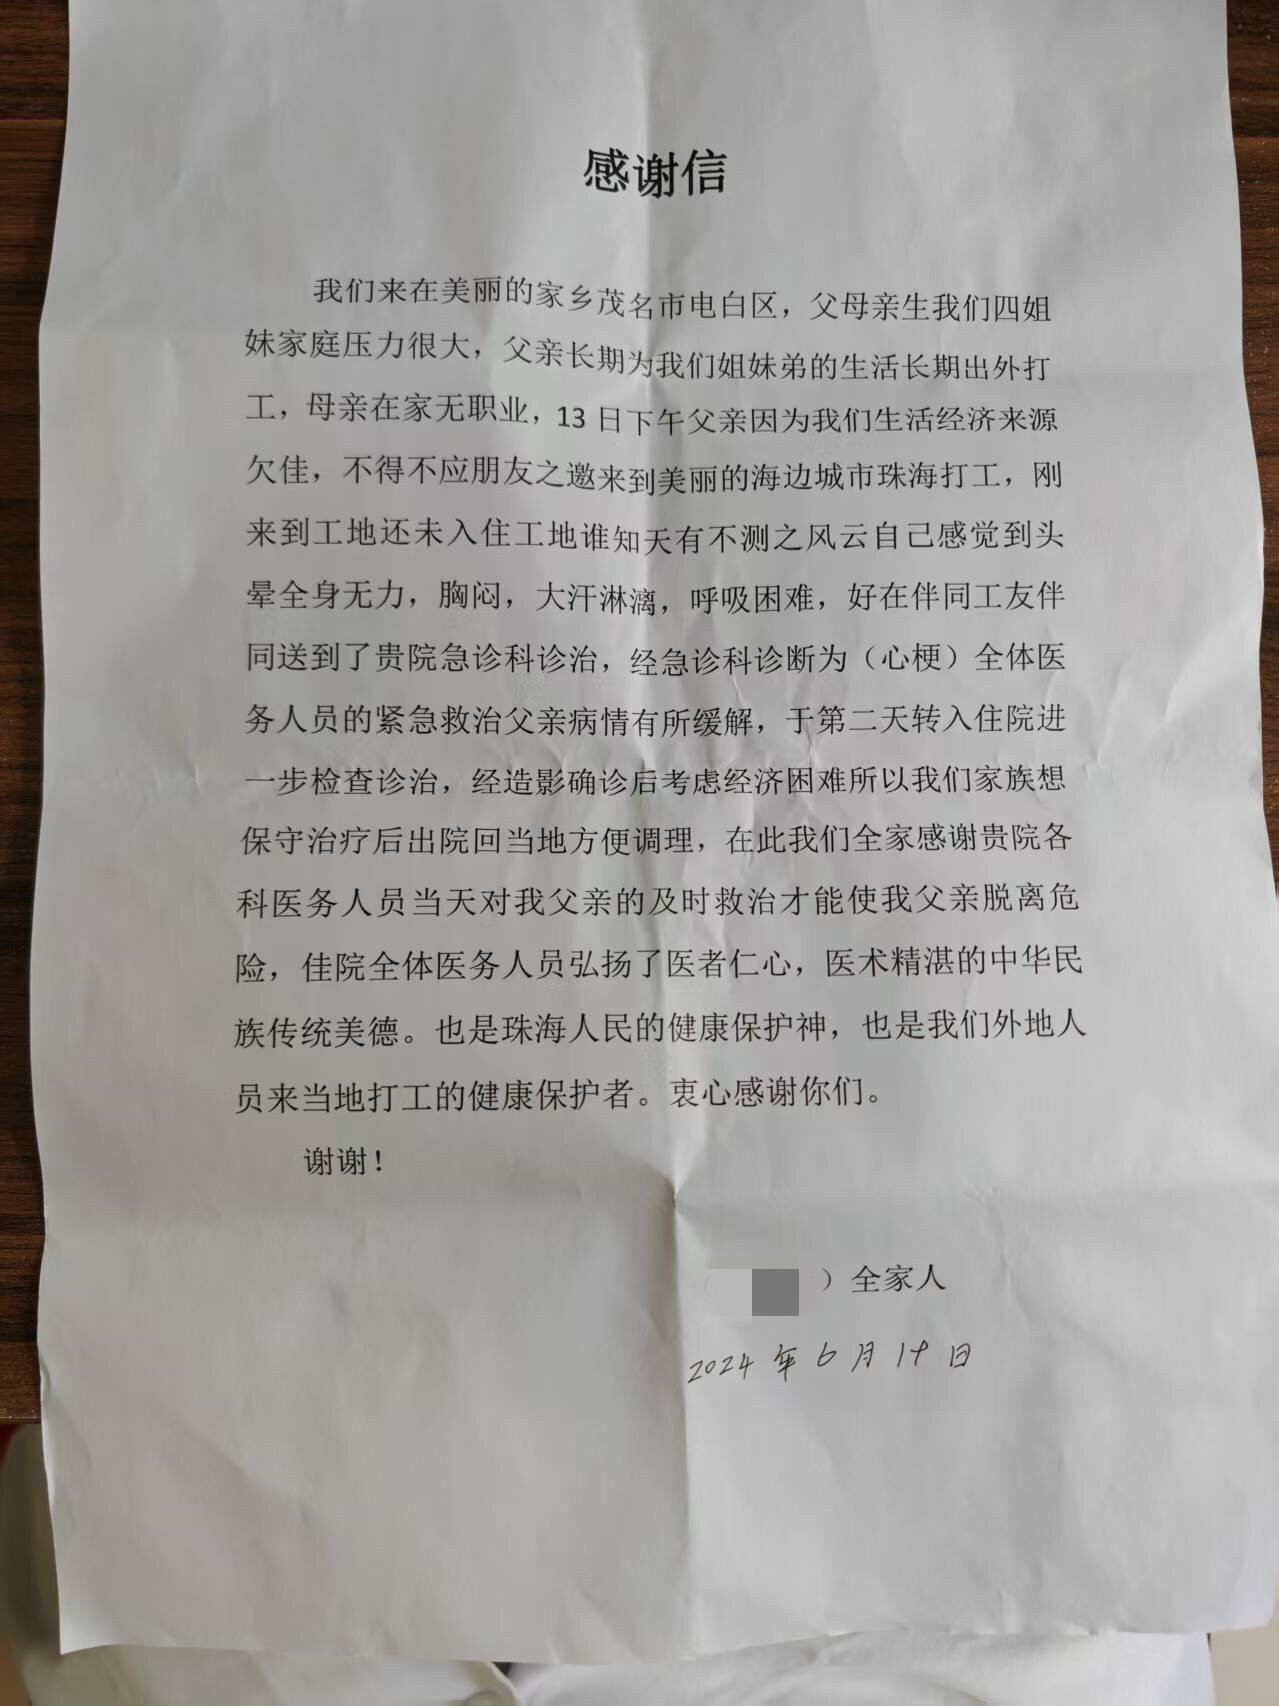 感谢信
我们来在美丽的家乡茂名市电白区，父母亲生我们四姐
妹家庭压力很大，父亲长期为我们姐妹弟的生活长期出外打
工，母亲在家无职业，13日下午父亲因为我们生活经济来源
欠佳，不得不应朋友之邀来到美丽的海边城市珠海打工，刚
来到工地还未入住工地谁知天有不测之风云自己感觉到头
晕全身无力，胸闷，大汗淋漓，呼吸困难，好在伴同工友伴
同送到了贵院急诊科诊治，经急诊科诊断为（心梗）全体医
务人员的紧急救治父亲病情有所缓解，于第二天转入住院进
一步检查诊治，经造影确诊后考虑经济困难所以我们家族想
保守治疗后出院回当地方便调理，在此我们全家感谢贵院各
科医务人员当天对我父亲的及时救治才能使我父亲脱离危
险，佳院全体医务人员弘扬了医者仁心，医术精湛的中华民
族传统美德。也是珠海人民的健康保护神，也是我们外地人
员来当地打工的健康保护者。衷心感谢你们。
谢谢！
）全家人
2024年6月19日